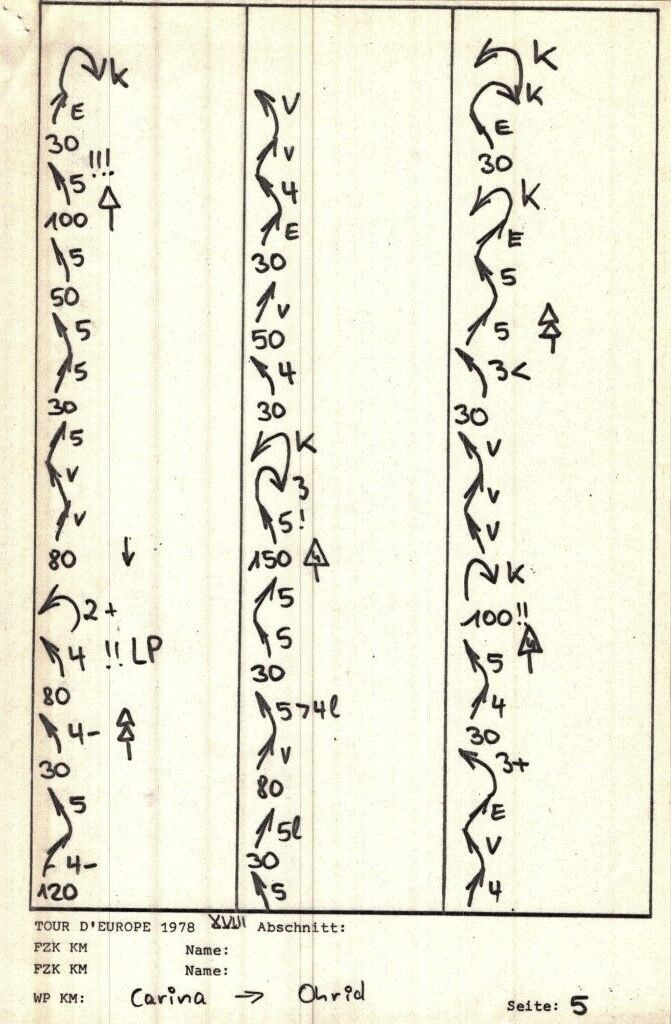 K
E
30
5 !!!
100
5
50
5
5
30
5
V
V
80
2+
4 !! LP
80
4-
30
5
4-
120
V
V
4
E
30
V
50
4
30
K
3
5!
150 4
5
5
30
5>4l
V
80
5l
30
5
K
K
E
30
K
E
5
5
3<
30
V
V
V
K
100!!
5 4
4
30
3+
E
V
4
TOUR D'EUROPE 1978 XVIII Abschnitt:
FZK KM Name:
FZK KM Name:
WP KM: Carina → Ohrid Seite: 5